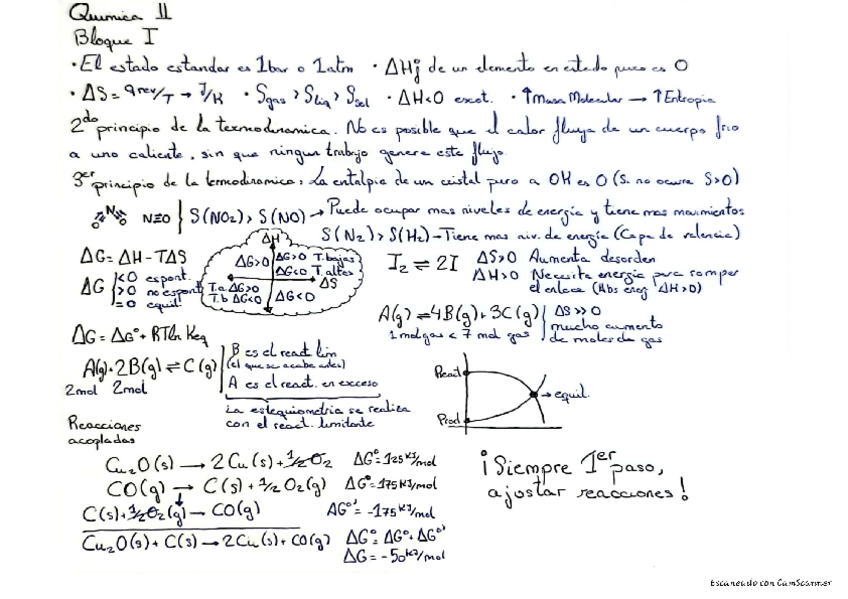 Quimica II
Bloque I
· El estado estandar es 1bar o 1atm · ΔHºf de un elemento en estado puro es 0
· ΔS = qrev/T → J/K · Sgas > Sliq > Ssol · ΔH<0 exot. · ↑Masa Molecular → ↑Entropia
2do principio de la termodinamica. No es posible que el calor fluya de un cuerpo frio
a uno caliente, sin que ningun trabajo genere este flujo.
3er principio de la termodinamica: La entalpia de un cristal puro a 0K es 0 (Si no ocurre S>0)
N≡O S(NO2) > S(NO) → Puede ocupar mas niveles de energía y tiene mas movimientos
S(N2) > S(H2) → Tiene mas niv. de energía (Capa de valencia)
ΔG = ΔH - TΔS
ΔG <0 espont.
>0 no espont
=0 equil
ΔH
ΔG>0
ΔG>0 T. bajas
ΔG<0 T. altas
ΔS
T.a ΔG>0
T.b ΔG<0
ΔG<0
I2 ⇌ 2I ΔS>0 Aumenta desorden
ΔH>0 Necesita energía para romper
el enlace (Abs energ ΔH>0)
A(g) ⇌ 4B(g) + 3C(g) ΔS>>0
1 mol gas < 7 mol gas mucho aumento
de moles de gas
ΔG = ΔG° + RTln Keq
A(g) + 2B(g) ⇌ C(g)
2mol 2mol
B es el react lim
(el que se acaba antes)
A es el react. en exceso
La estequiometria se realiza
con el react. limitante
React
Prod
equil.
Reacciones
acopladas
Cu2O(s) → 2Cu(s) + 1/2O2 ΔG°=125 kJ/mol
CO(g) → C(s) + 1/2 O2(g) ΔG°=175 kJ/mol
C(s) + 1/2O2(g) → CO(g) ΔG°'=-175 kJ/mol
Cu2O(s) + C(s) → 2Cu(s) + CO(g) ΔG°= ΔG°+ ΔG°'
ΔG = -50 kJ/mol
¡Siempre 1er paso,
ajustar reacciones!
Escaneado con CamScanner